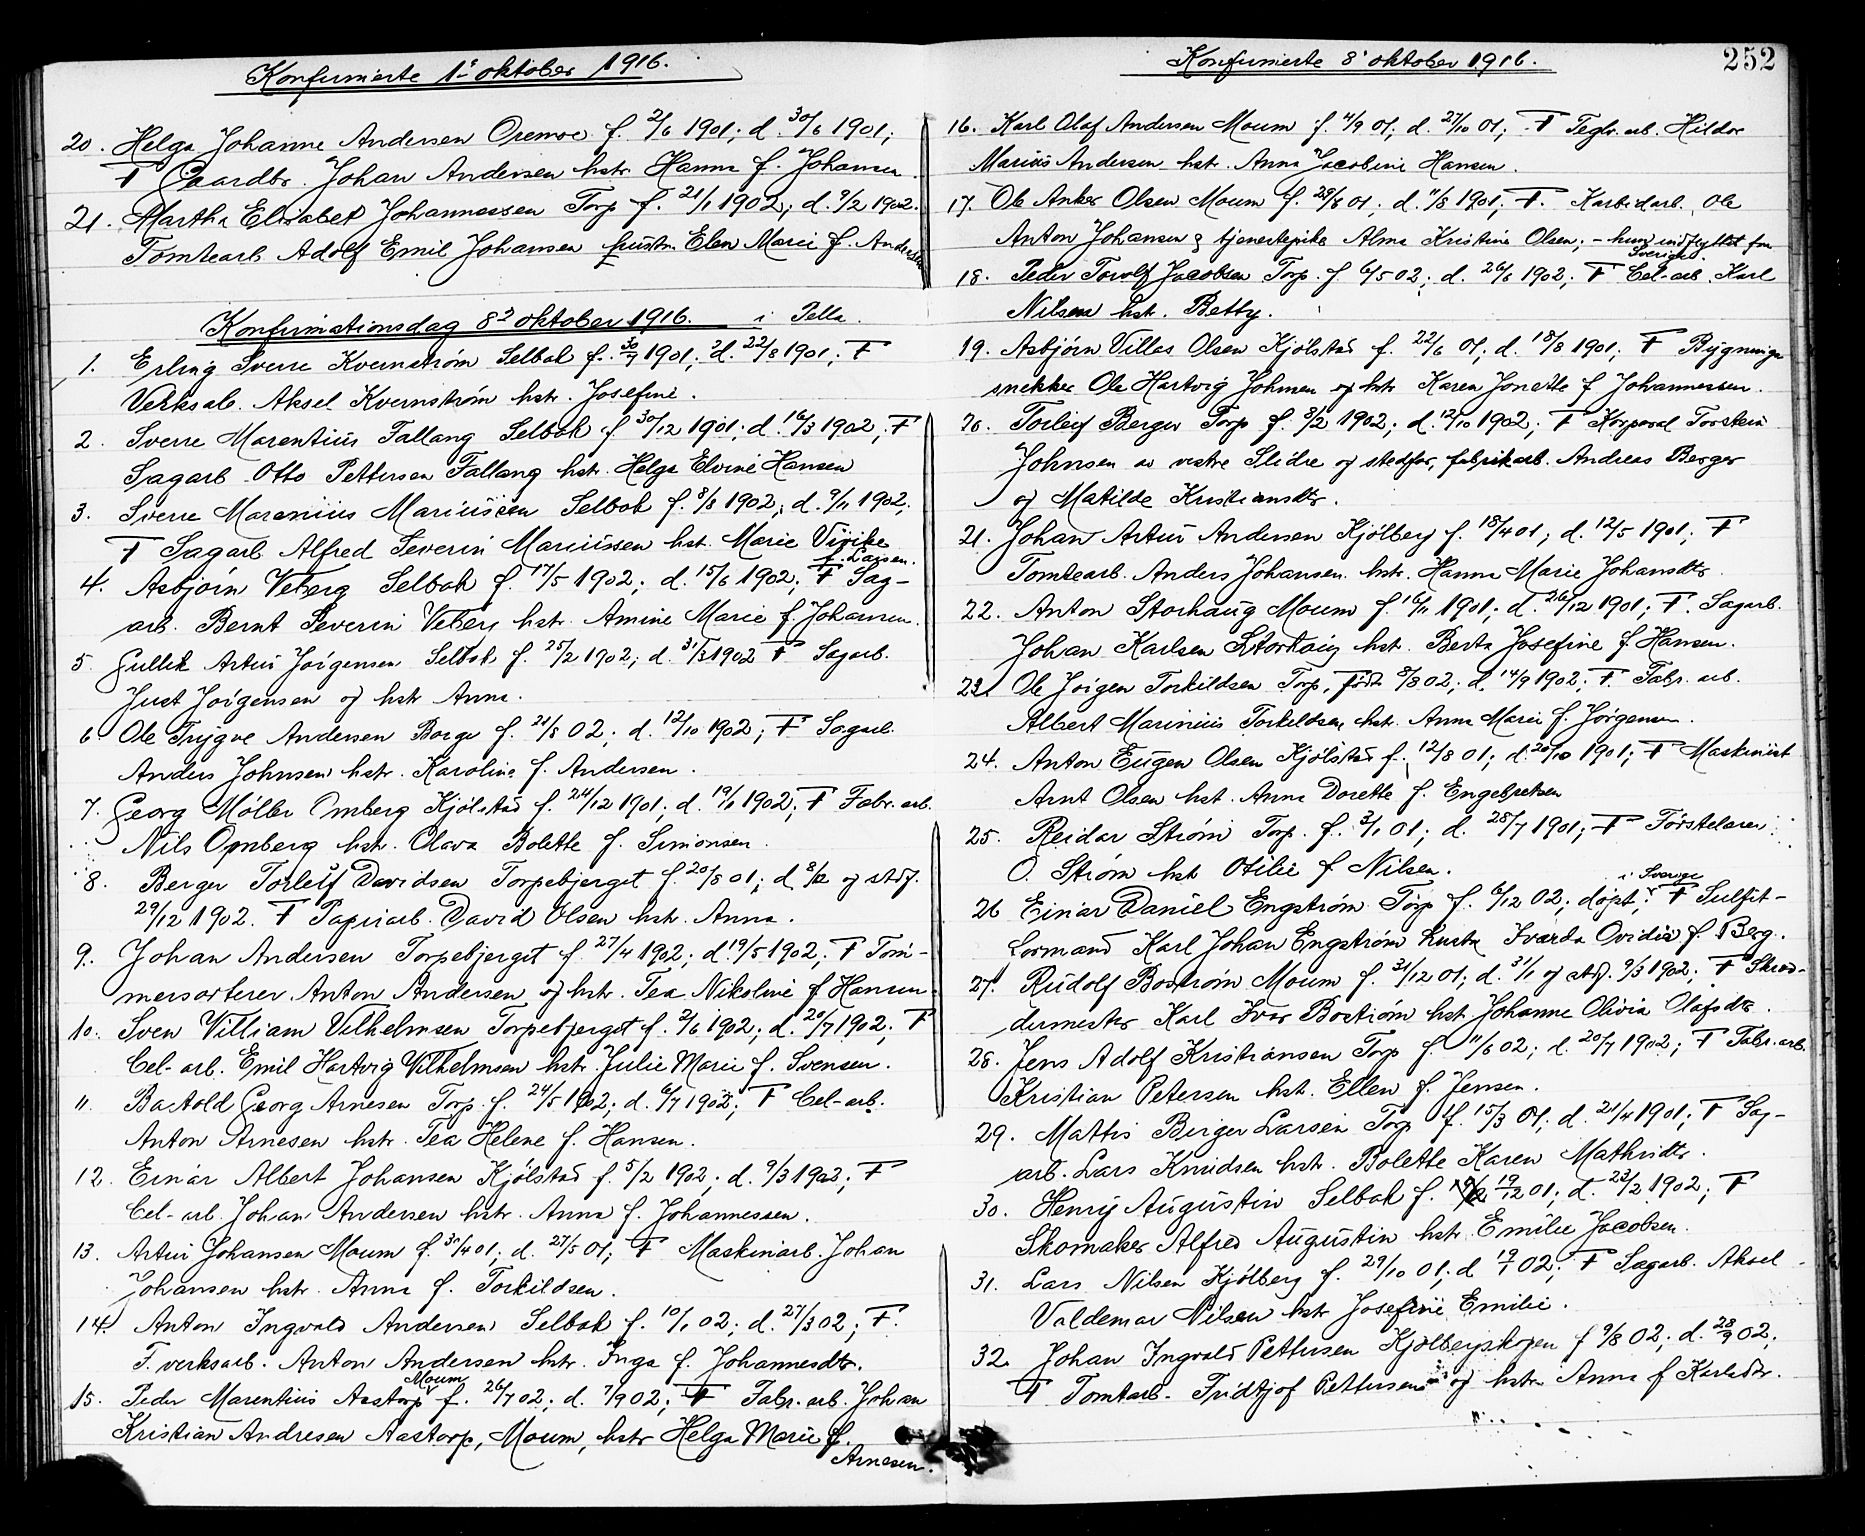 Konfirmerte 1ste oktober 1916.
20. Helga Johanne Andersen Oremoe f. 2/6 1901; d. 30/6 1901;
F Gaardbr. Johan Andersen hstr. Hanna f. Johansen.
21. Martha Elisabet Johannessen Torp f. 21/1 1902; d. 9/2 1902.
Tomtearb. Adolf Emil Johansen hustru Elen Marie f. Andersen
Konfirmationsdag 8de oktober 1916. i Pella.
1. Erling Sverre Kvernstrøm Selbak f. 30/7 1901; d. 22/8 1901; F
Verksarb. Aksel Kvernstrøm hstr. Josefine.
2. Sverre Marentius Tallang Selbak f. 30/12 1901; d. 16/3 1902; F
Sagarb. Otto Pettersen Tallang hstr. Helga Elvine Hansen
3. Sverre Marenius Mariussen Selbak f. 8/8 1902; d. 9/11 1902;
F Sagarb. Alfred Severin Mariussen hst. Marie Virike
f. Larsen.
4. Asbjørn Veberg Selbak f. 17/5 1902; d. 15/6 1902; F Sag-
arb. Bernt Severin Veberg hstr. Amine Marie f. Johansen.
5. Gullik Artur Jørgensen Selbak f. 25/2 1902; d. 31/3 1902 F Sagarb.
Just Jørgensen og hstr Anna.
6. Ole Trygve Andersen Borge f. 21/8 02; d. 12/10 1902; F Sagarb.
Anders Johnsen hstr. Karoline f. Andersen.
7. Georg Møller Omberg Kjølstad f. 24/12 1901; d. 19/1 1902; F Fabr. arb.
Nils Omberg hstr. Olava Bolette f. Simonsen.
8. Berger Torleif Davidsen Torpebjerget f. 20/8 01; d. 8/12 og stdf.
29/12 1902. F Papirarb. David Olsen hstr. Anna.
9. Johan Andersen Torpebjerget f. 27/4 1902; d. 19/5 1902; F Tøm-
mersorterer Anton Andersen og hstr. Tea Nikoline f. Hansen.
10. Sven Villiam Vilhelmsen Torpebjerget f. 2/6 1902; d. 20/7 1902; F
Cel- arb. Emil Hartvig Vilhelmsen hstr. Julie Marie f. Svensen.
11. Bartold Georg Arnesen Torp. f. 24/5 1902; d. 6/7 1902; F Cel-arb.
Anton Arnesen hstr. Tea Helene f. Hansen.
12. Einar Albert Johansen Kjølstad f. 5/2 1902; d. 9/3 1902; F
Cel- arb. Johan Andersen hstr. Anna f. Johannessen.
13. Artur Johansen Moum f. 30/4 01; d. 27/5 01; F Maskinarb. Johan
Johansen hstr. Anna f. Torkildsen.
14. Anton Ingvald Andersen Selbak f. 10/1 02; d. 27/3 02; F.
T. verksarb. Anton Andersen hstr. Inga f. Johannesdtr.
15. Peder Marentius Aastorp Moum f. 26/7 02; d. 7/9 02; F Fabr. arb. Johan
Kristian Andresen Aastorp, Moum, hstr Helga Marie f.
Arnesen.
Konfirmerte 8' oktober 1916.
252
16. Karl Olaf Andersen Moum f. 4/9 01; d. 27/10 01; F Teglv. arb. Hildor
Marius Andersen hst. Anna Jacobine Hansen.
17. Ole Anker Olsen Moum f. 28/6 01; d. 11/8 1901; F. Karbidarb. Ole
Anton Johansen & tjenestepike Alma Kristine Olsen; - hun indflyttet fra
Sverige.
18. Peder Torolf Jacobsen Torp. f. 6/5 02; d. 26/6 1902; F Cel-arb. Karl
Nilsen hst. Betty.
19. Asbjørn Villas Olsen Kjølstad f. 22/6 01; d. 18/8 1901; F Bygnings
snekker Ole Hartvig Johnsen og hstr Karen Jonette f. Johannessen.
20. Torleif Berger Torp f. 8/2 1902; d. 12/10 1902; F Korporal Torstein
Johnsen av vestre Slidre og stedfar, fabrikarb. Andreas Berger
og Matilde Kristiansdtr.
21. Johan Artur Andersen Kjølberg f. 18/4 01; d. 12/5 1901; F
Tomtearb. Anders Johansen hstr. Hanna Marie Johansdtr.
22. Anton Storhaug Moum f. 16/11 1901; d. 26/12 1901; F. Sagarb.
Johan Karlsen Storhaug hst. Berta Josefine f. Hansen.
23. Ole Jørgen Torkildsen Torp, født 8/8 02; d. 14/9 1902; F Fabr. arb.
Albert Marinius Torkildsen hst. Anna Marie f. Jørgensen.
24. Anton Eugen Olsen Kjølstad f. 12/8 01; d. 20/10 1901; F Maskinist
Arnt Olsen hst. Anna Dorette f. Engebretsen
25. Reidar Strøm Torp. f. 3/1 01; d. 28/7 1901; F Førstelærer
O. Strøm hst Otilie f Nilsen.
26 Einar Daniel Engstrøm Torp f. 6/12 02; døpt i Sverige; F Sulfit-
formand Karl Johan Engstrøm hustr Ivarda Ovidia f. Berg.
27. Rudolf Bostrøm Moum f. 31/12 01; d. 31/1 og stdf. 9/3 1902; F Skræd-
dermester Karl Ivar Bostrøm hst Johanne Olivia Olafsdtr.
28. Jens Adolf Kristiansen Torp f. 11/6 02; d. 20/7 1902; F Fabr. arb.
Kristian Petersen hst. Ellen f. Jensen.
29. Mattis Birger Larsen Torp f. 15/3 01; d. 21/4 1901; F Sag-
arb. Lars Knudsen hstr. Bolette Karen Mathisdtr.
30. Henry Augustin Selbak f. 19/12 01; d. 23/2 1902; F
Skomaker Alfred Augustin hstr Emilie Jacobsen.
31. Lars Nilsen Kjølberg f. 29/10 01; d 19/1 02; F Sagarb. Aksel
Valdemar Nilsen hstr Josefine Emilie.
32. Johan Ingvald Pettersen Kjølbergskogen f 9/8 02; d. 28/9 02;
F Tomtarb. Fridtjof Pettersen og hstr Anna f Karlsdtr.